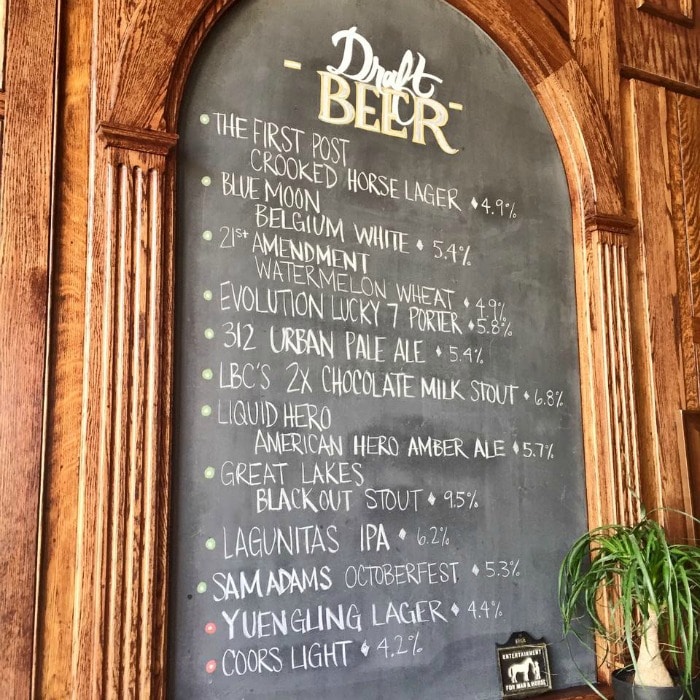 Draft
BEER
THE FIRST POST
CROOKED HORSE LAGER ♦ 4.9%
BLUE MOON
BELGIUM WHITE ♦ 5.4%
21st AMENDMENT
WATERMELON WHEAT ♦ 4.9%
EVOLUTION LUCKY 7 PORTER ♦ 5.8%
312 URBAN PALE ALE ♦ 5.4%
LBC'S 2X CHOCOLATE MILK STOUT ♦ 6.8%
LIQUID HERO
AMERICAN HERO AMBER ALE ♦ 5.7%
GREAT LAKES
BLACKOUT STOUT ♦ 9.5%
LAGUNITAS IPA ♦ 6.2%
SAM ADAMS OCTOBERFEST ♦ 5.3%
YUENGLING LAGER ♦ 4.4%
COORS LIGHT ♦ 4.2%
ENTERTAINMENT
FOR MAN & HORSE